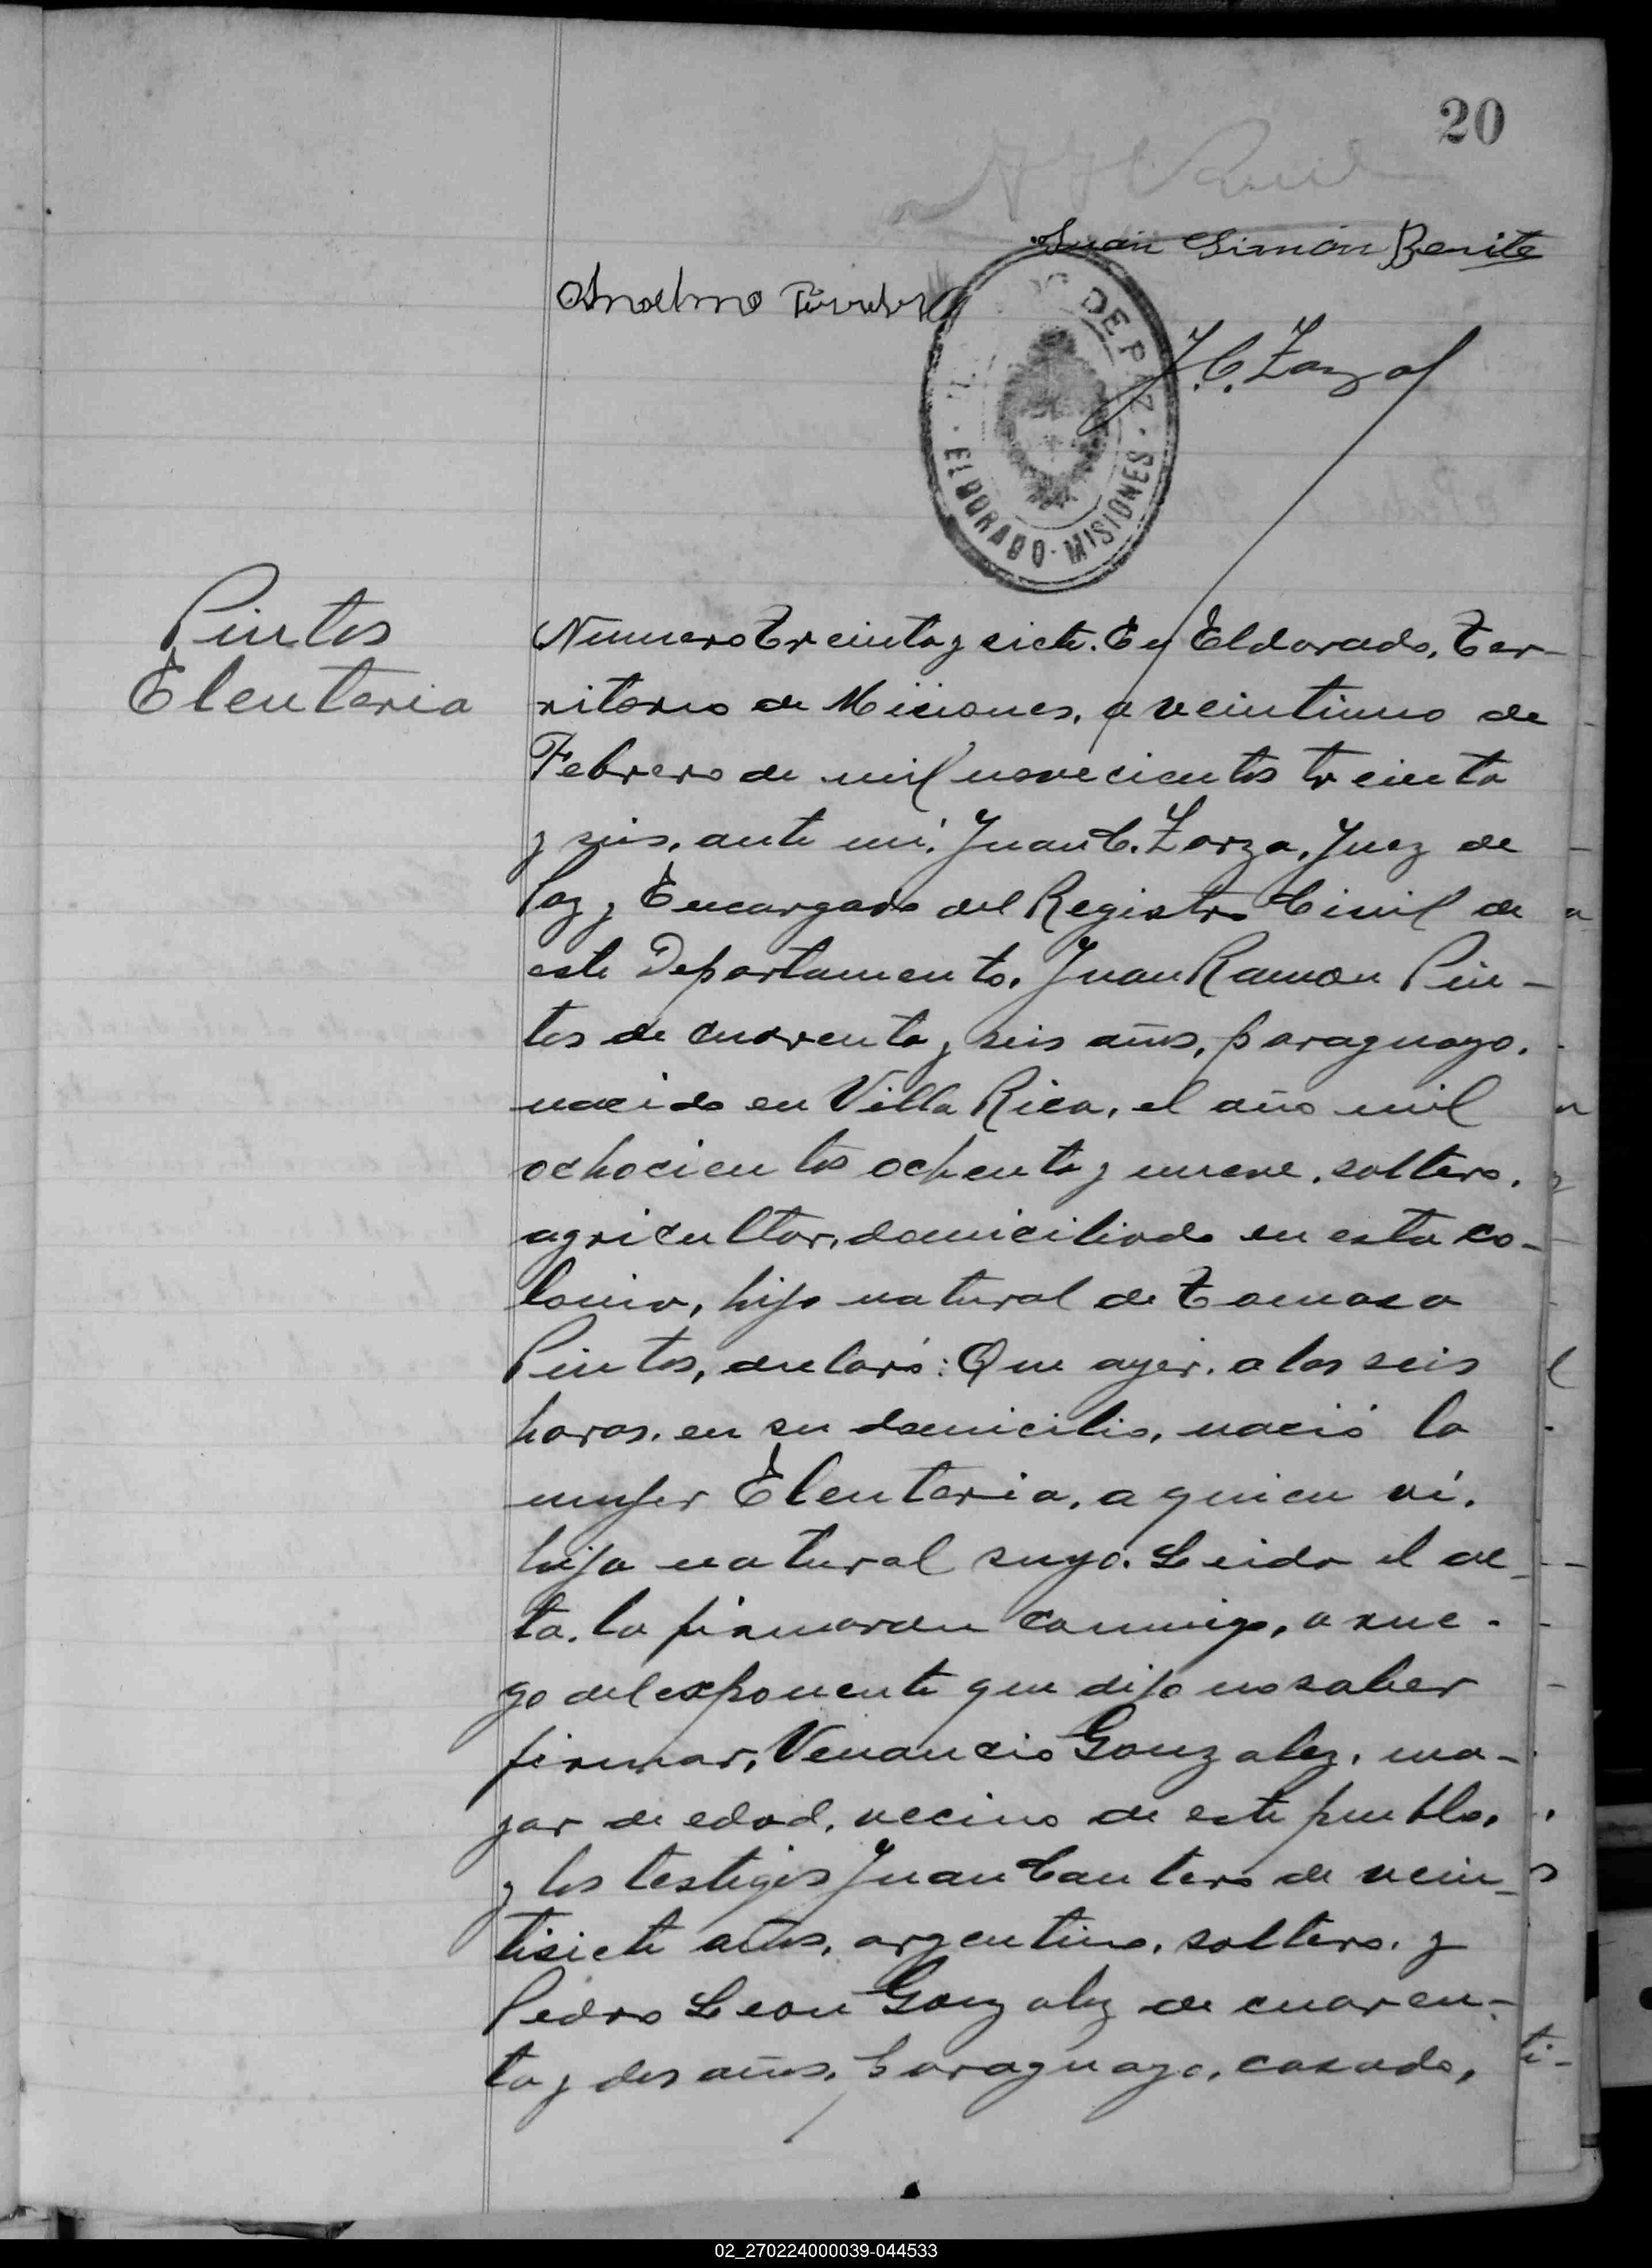 20
Juan Simón Benite
Anselmo
J. C. Zarza
DE PAZ
ELDORADO - MISIONES
Pintos
Eleuteria
Numero Treinta y siete. En Eldorado, Ter-
ritorio de Misiones, a veintiuno de
Febrero de mil novecientos treinta
y seis, ante mí, Juan C. Zarza, Juez de
Paz y Encargado del Registro Civil de
este Departamento, Juan Ramon Pin-
tos de cuarenta y seis años, paraguayo,
nacido en Villa Rica, el año mil
ochocientos ochenta y nueve, soltero,
agricultor, domiciliado en esta co-
lonia, hijo natural de Tomasa
Pintos, declaró: Que ayer, a las seis
horas, en su domicilio, nació la
mujer Eleuteria, a quien ví,
hija natural suya. Leida el ac-
ta, la firmaron conmigo, a rue-
go del exponente que dijo no saber
firmar, Venancio Gonzalez, ma-
yor de edad, vecino de este pueblo,
y los testigos Juan Cantero de vein-
tisiete años, argentino, soltero, y
Pedro Leon Gonzalez de cuaren-
ta y dos años, paraguayo, casado,
02_270224000039-044533